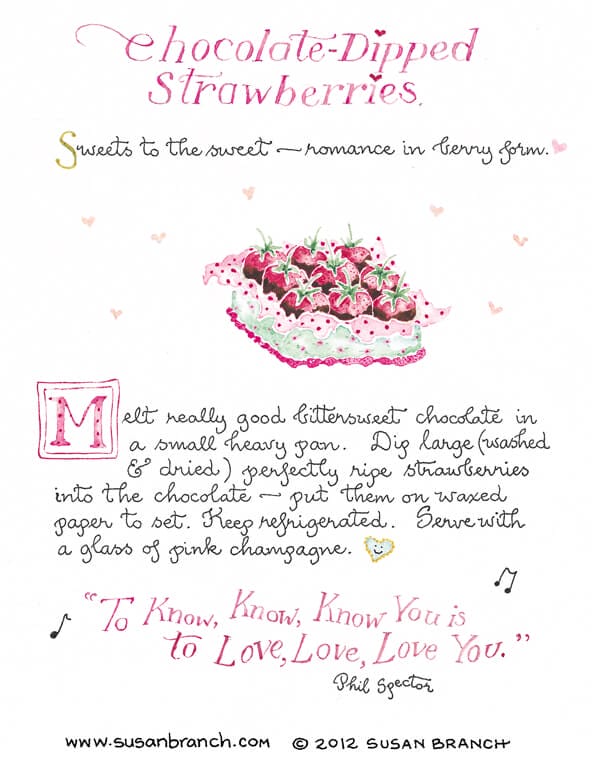 Chocolate-Dipped
Strawberries.
Sweets to the sweet — romance in berry form.
Melt really good bittersweet chocolate in
a small heavy pan. Dip large (washed
& dried) perfectly ripe strawberries
into the chocolate — put them on waxed
paper to set. Keep refrigerated. Serve with
a glass of pink champagne.
"To Know, Know, Know You is
to Love, Love, Love You."
Phil Spector
www.susanbranch.com © 2012 SUSAN BRANCH